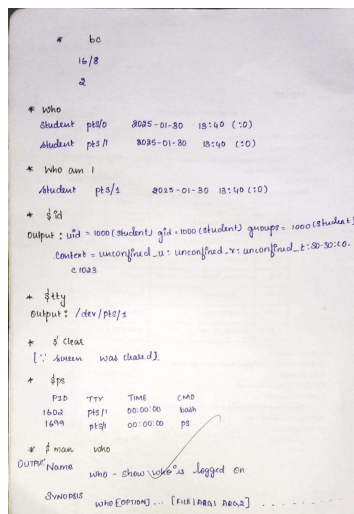 * bc
16/8
2
* Who
Student pts/0 2025-01-30 13:40 (:0)
Student pts/1 2025-01-30 13:40 (:0)
* Who am i
Student pts/1 2025-01-30 13:40 (:0)
* $id
Output: uid = 1000 (Student) gid = 1000 (Student) groups = 1000 (Student)
Context = unconfined_u: unconfined_r: unconfined_t: S0-S0:C0.
c1023
* $tty
Output: /dev/pts/1
* $ Clear
[∵ Screen was cleared]
* $ps
PID TTY TIME CMD
1602 pts/1 00:00:00 bash
1699 pts/1 00:00:00 ps
* $ man who
OUTPUT: Name
who - show who is logged on
SYNOPSIS
who [OPTION]... [FILE | ARG1 ARG2] . . . . . . . .